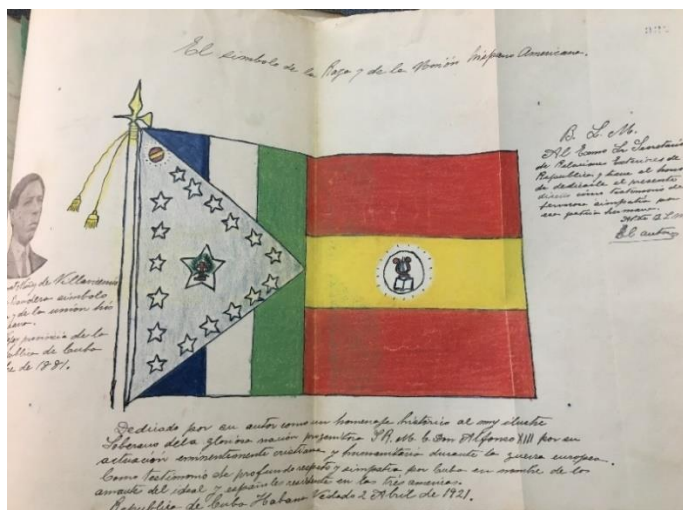 El simbolo de la Raza y de la Unión hispano Americana.
B. L. M.
Al Exmo Sr Secretario
de Relaciones Exteriores de
Republica y hace el honor
de dedicarle el presente
diseño como testimonio de
fervorosa simpatia por
su patria hermana.
El autor
de Villamil
bandera simbolo
y de la union
provincia de la
de Cuba
de 1881.
Dedicado por su autor como un homenaje histórico al muy ilustre
Soberano de la gloriosa nación progenitora S. R. M. C. Don Alfonso XIII por su
actuación eminentemente cristiana y humanitaria durante la guerra europea.
Como testimonio de profundo respeto y simpatia por Cuba en nombre de los
amante del ideal y españoles residente en las tres americas.
Republica de Cuba Habana Vedado 2 Abril de 1921.